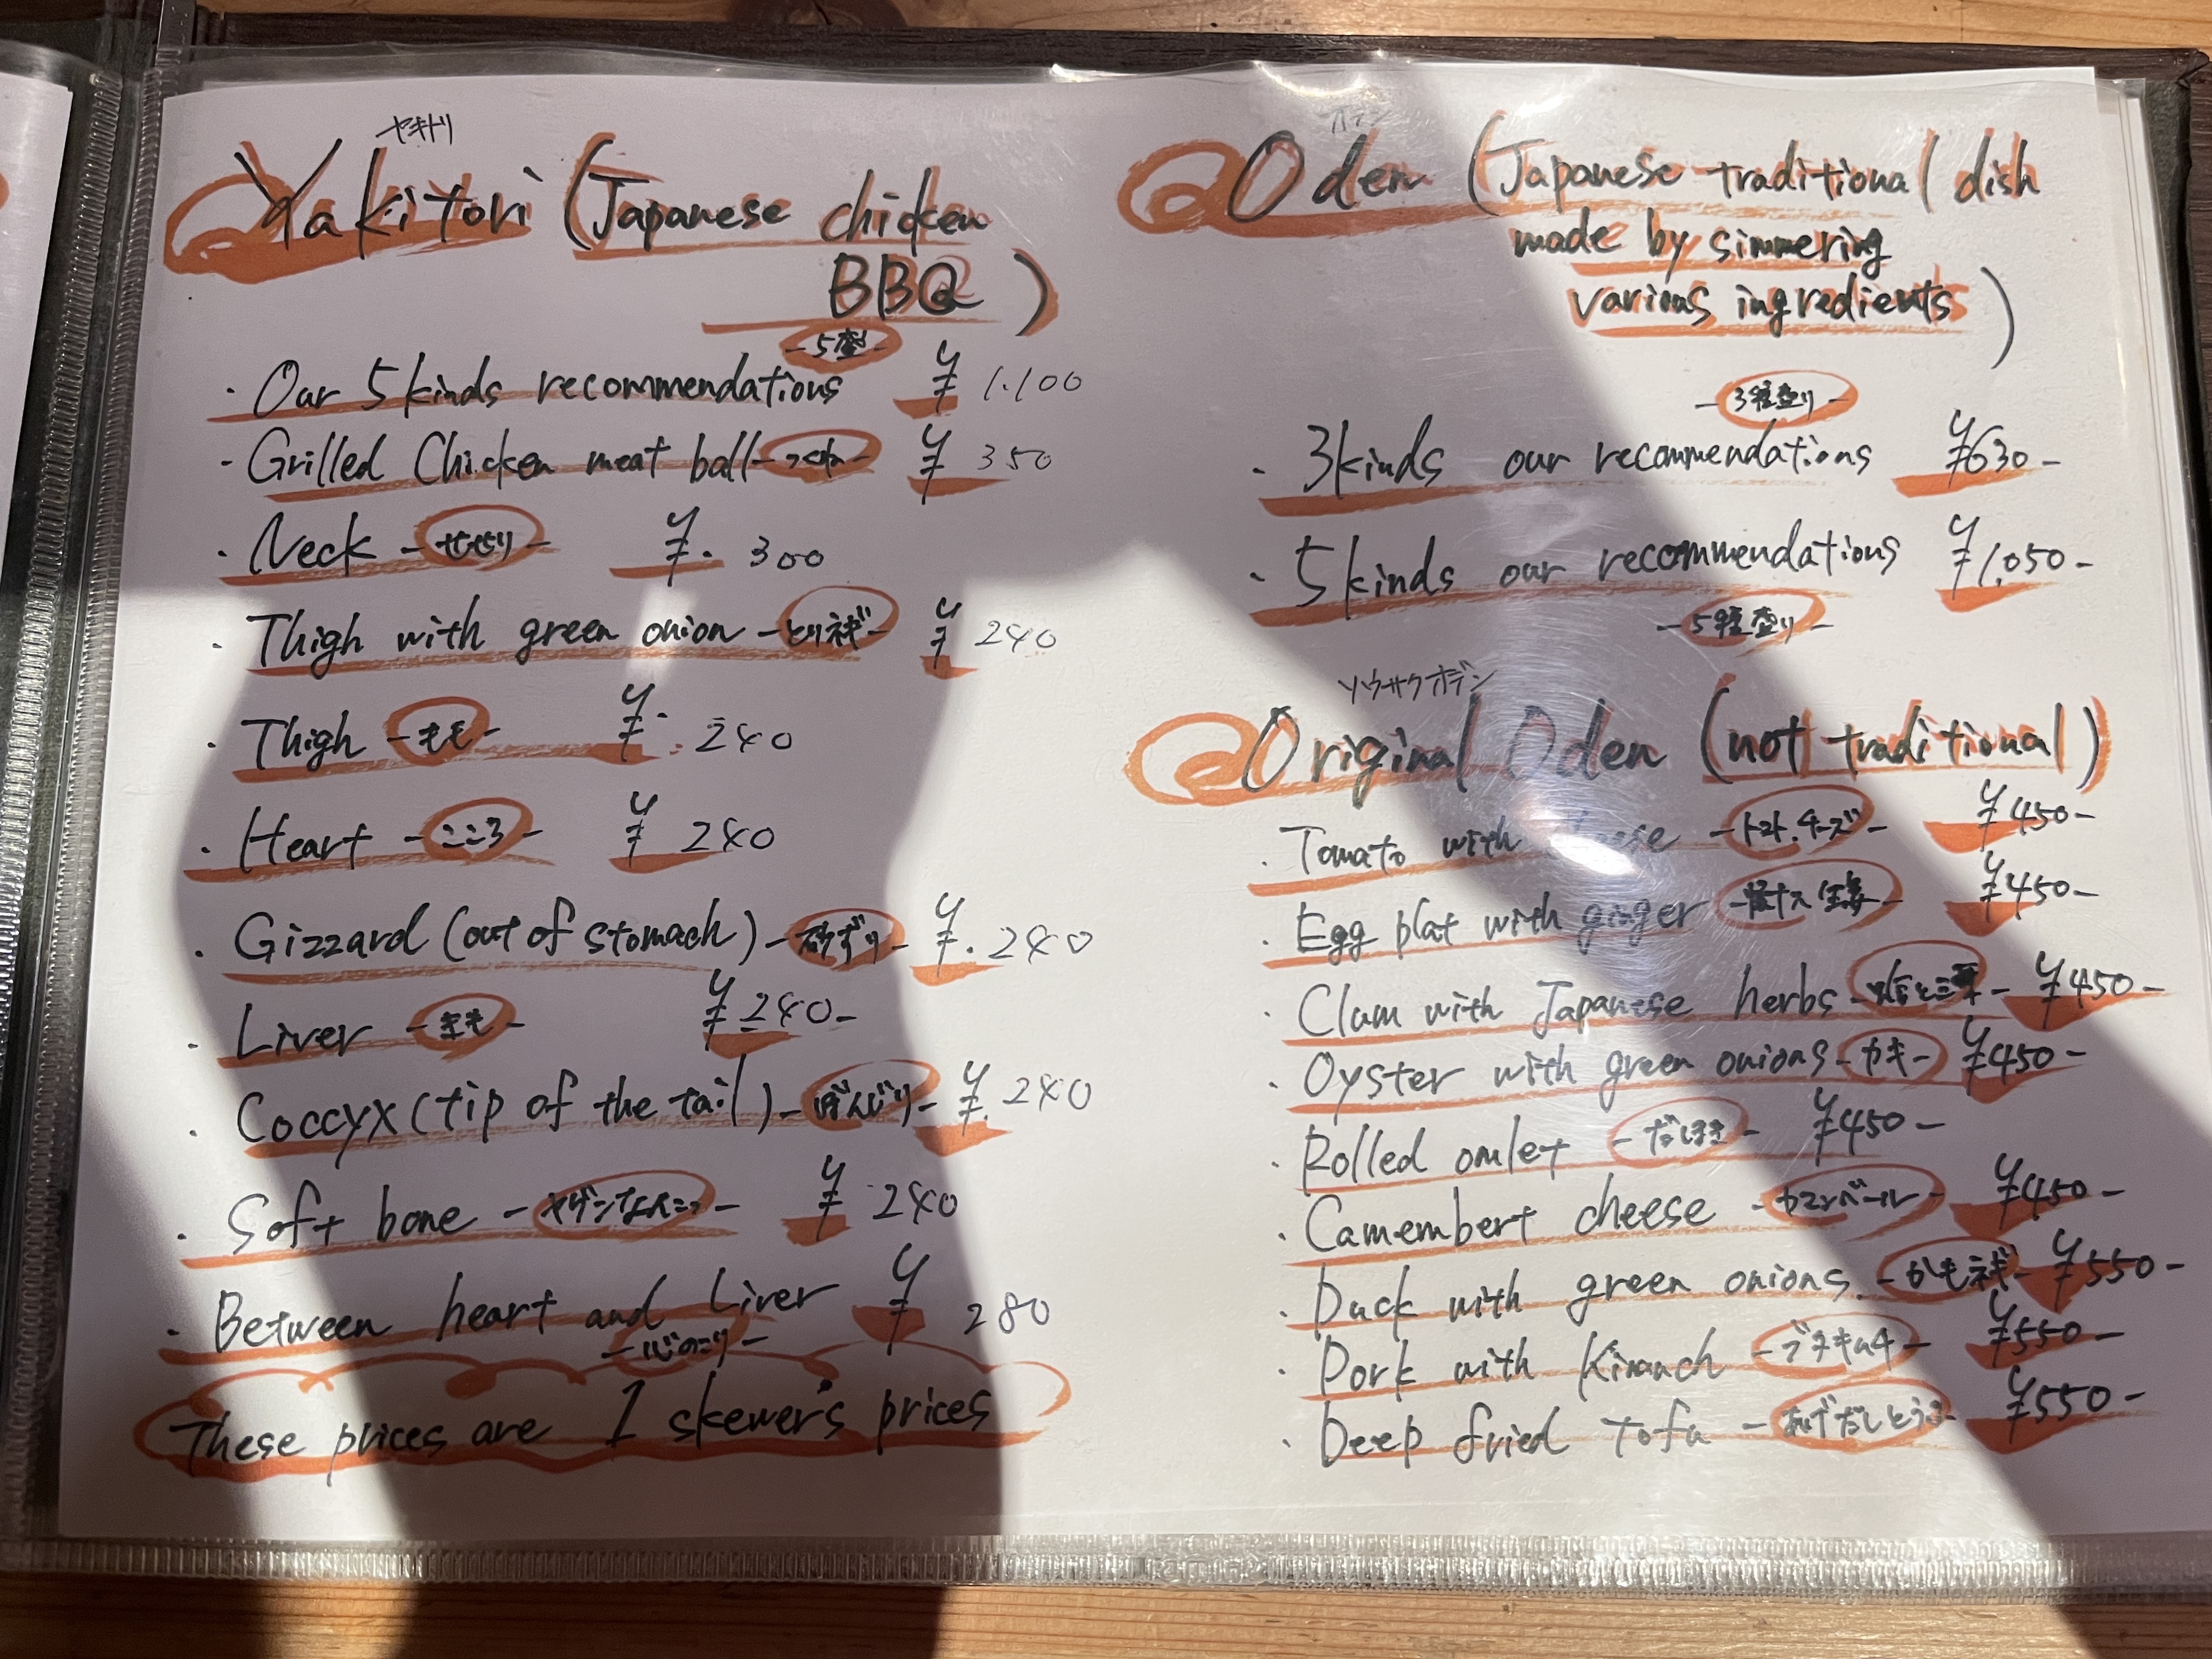 ヤキトリ
Yakitori (Japanese chicken
BBQ)
-5種-
· Our 5 kinds recommendations ¥ 1.100
· Grilled Chicken meat ball -つくね- ¥ 350
· Neck -せせり- ¥. 300
· Thigh with green onion -とりネギ- ¥ 240
· Thigh -もも- ¥. 240
· Heart -こころ- ¥ 240
· Gizzard (out of stomach) -砂ずり- ¥. 240
· Liver -きも- ¥240-
· Coccyx (tip of the tail) -ぼんじり- ¥. 240
· Soft bone -ヤゲンなんこつ- ¥ 240
· Between heart and Liver ¥ 280
-心のこり-
These prices are 1 skewer's prices
オデン
Oden (Japanese traditional dish
made by simmering
various ingredients)
-3種盛り-
· 3kinds our recommendations ¥630-
· 5kinds our recommendations ¥1,050-
-5種盛り-
ソウサクオデン
Original Oden (not traditional)
· Tomato with cheese -トマト.チーズ- ¥450-
· Egg plat with ginger ¥450-
· Clam with Japanese herbs ¥450-
· Oyster with green onions -カキ- ¥450-
· Rolled omlet -だしまき- ¥450-
· Camembert cheese -カマンベール- ¥450-
· Duck with green onions. -かもネギ- ¥550-
· Pork with Kimuch -ブタキムチ- ¥550-
· Deep fried Tofu -あげだしとうふ- ¥550-